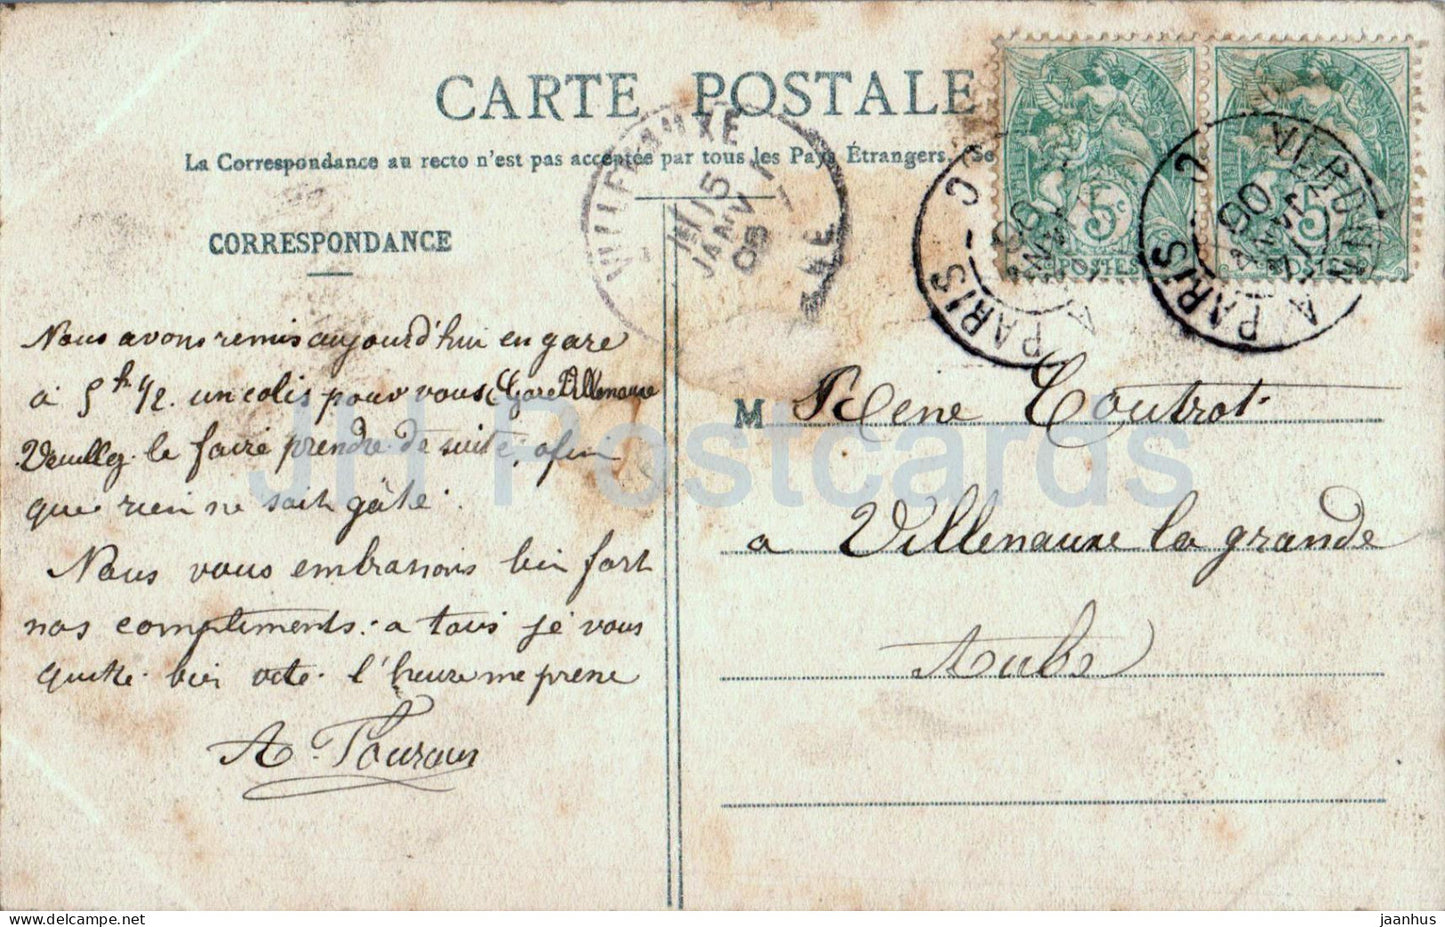 CARTE POSTALE
La Correspondance au recto n'est pas acceptée par tous les Pays Étrangers. (Se
CORRESPONDANCE
VILLENAUXE
15
JANV
06
AUBE
PARIS
PARIS
VERDUN
06
5c
POSTES
5
POSTES
Nous avons remis aujourd'hui en gare
à 5h 1/2. un colis pour vous Gare Villenauxe
Veuillez le faire prendre de suite, afin
que rien ne soit gâté.
Nous vous embrassons bien fort
nos compliments. a tous je vous
quitte. bien vite. l'heure me prene
A. Touraus
M Rene Coutrot.
a Villenauxe la grande
Aube
JH Postcards
jaanhus